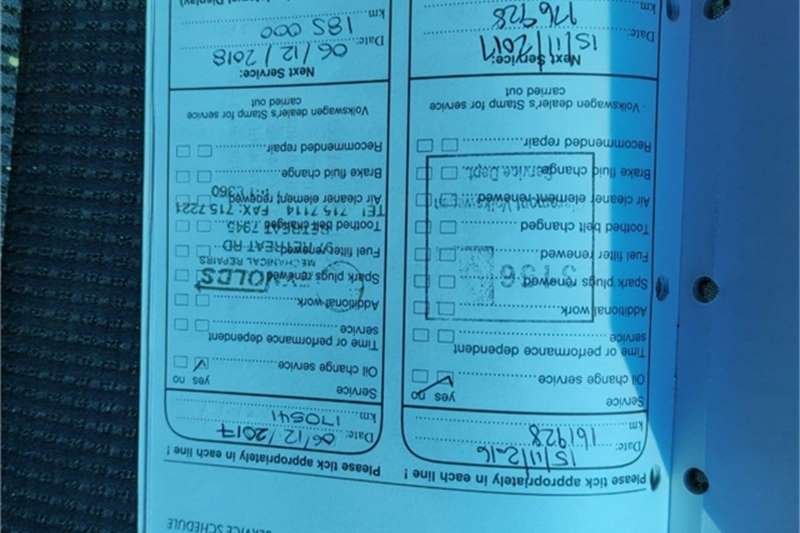 SERVICE SCHEDULE
Please tick appropriately in each line !
Date: 15/11/2016
km 161928
Service
yes no
Oil change service
Time or performance dependent
service
Additional work
Spark plugs renewed
Fuel filter renewed
Toothed belt changed
Air cleaner element renewed
Brake fluid change
Recommended repair
3136
Service Dept.
Volkswagen dealer's Stamp for service
carried out
Next Service:
Date: 15/11/2017
km 176928
Please tick appropriately in each line !
Date: 06/12/2017
km 170541
Service
yes no
Oil change service
Time or performance dependent
service
Additional work
Spark plugs renewed
Fuel filter renewed
Toothed belt changed
Air cleaner element renewed
Brake fluid change
Recommended repair
MECHANICAL REPAIRS
RETREAT RD
RETREAT 7945
TEL 715 7114 FAX: 715 7221
Volkswagen dealer's Stamp for service
carried out
Next Service:
Date: 06/12/2018
km 185 000
Display)